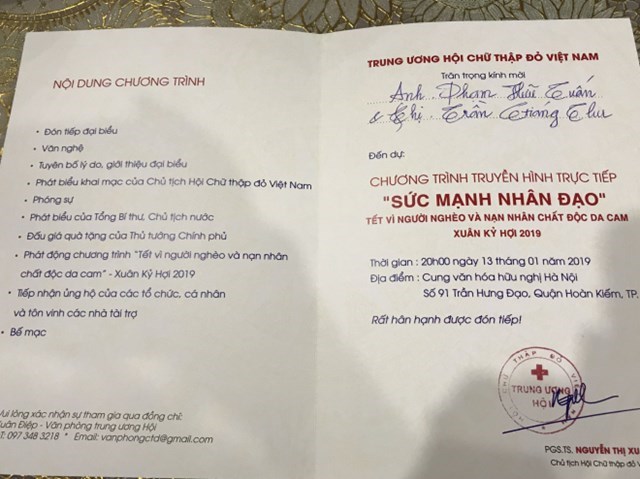 NỘI DUNG CHƯƠNG TRÌNH
• Đón tiếp đại biểu
• Văn nghệ
• Tuyên bố lý do, giới thiệu đại biểu
• Phát biểu khai mạc của Chủ tịch Hội Chữ thập đỏ Việt Nam
• Phóng sự
• Phát biểu của Tổng Bí thư, Chủ tịch nước
• Đấu giá quà tặng của Thủ tướng Chính phủ
• Phát động chương trình "Tết vì người nghèo và nạn nhân
chất độc da cam" - Xuân Kỷ Hợi 2019
• Tiếp nhận ủng hộ của các tổ chức, cá nhân
và tôn vinh các nhà tài trợ
• Bế mạc
Vui lòng xác nhận sự tham gia qua đồng chí:
Xuân Điệp - Văn phòng trung ương Hội
T: 097 348 3218 * Email: vanphongctd@gmail.com
TRUNG ƯƠNG HỘI CHỮ THẬP ĐỎ VIỆT NAM
Trân trọng kính mời
Anh Phạm Hữu Tuấn
& Chị Trần Giáng Thu
Đến dự:
CHƯƠNG TRÌNH TRUYỀN HÌNH TRỰC TIẾP
"SỨC MẠNH NHÂN ĐẠO"
TẾT VÌ NGƯỜI NGHÈO VÀ NẠN NHÂN CHẤT ĐỘC DA CAM
XUÂN KỶ HỢI 2019
Thời gian : 20h00 ngày 13 tháng 01 năm 2019
Địa điểm : Cung văn hóa hữu nghị Hà Nội
Số 91 Trần Hưng Đạo, Quận Hoàn Kiếm, TP.
Rất hân hạnh được đón tiếp!
CHỮ THẬP ĐỎ VIỆT
TRUNG ƯƠNG
HỘI
PGS.TS. NGUYỄN THỊ XU
Chủ tịch Hội Chữ thập đỏ V